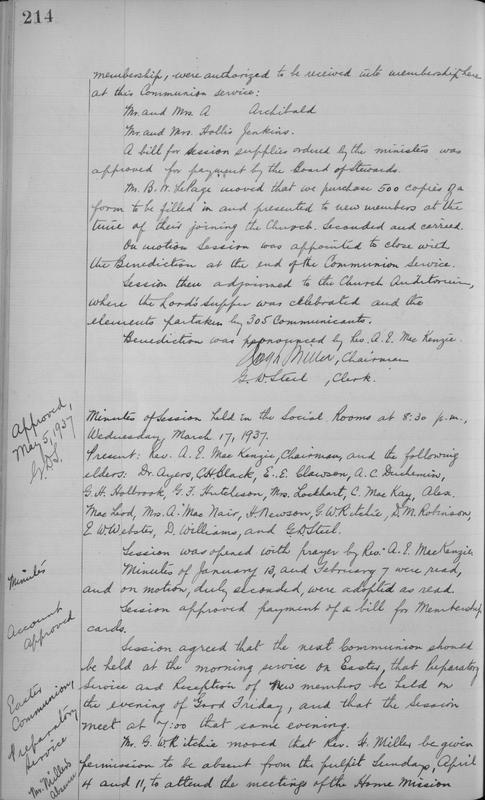 214
membership, were authorized to be received into membership here
at this Communion service:
Mr. and Mrs. A Archibald
Mr. and Mrs. Hollis Jenkins.
A bill for session supplies ordered by the ministers was
approved for payment by the Board of Stewards.
Mr. B. W. LePage moved that we purchase 500 copies of a
form to be filled in and presented to new members at the
time of their joining the Church. Seconded and carried.
On motion Session was appointed to close with
the Benediction at the end of the Communion Service.
Session then adjourned to the Church Auditorium,
where the Lord's supper was celebrated and the
elements partaken by 305 Communicants.
Benediction was pronounced by Rev. A. E. MacKenzie.
Miller, Chairman
G. D. Steel, Clerk.
Approved,
May 5, 1937
G.D.S.
Minutes of Session held in the Social Rooms at 8:30 p.m.,
Wednesday, March 17, 1937.
Present: Rev. A. E. MacKenzie, Chairman, and the following
elders: Dr. Ayers, C. H. Black, E. E. Clawson, A. C. Duchemin,
G. H. Holbrook, G. F. Hutcheson, Mrs. Lockhart, C. MacKay, Alex.
MacLeod, Mrs. A. MacNair, H. Newson, G. W. Ritchie, D. M. Robinson,
E. W. Webster, D. Williams, and G. D. Steel.
Session was opened with prayer by Rev. A. E. MacKenzie
Minutes
Minutes of January 13, and February 7 were read,
and on motion, duly seconded, were adopted as read.
Account
approved
Session approved payment of a bill for Membership
cards.
Easter
Communion,
Preparatory
Service
Session agreed that the next Communion should
be held at the morning service on Easter, that Preparatory
Service and Reception of New members be held on
the evening of Good Friday, and that the Session
meet at 7:00 that same evening.
Mr. Miller's
absence
Mr. G. W. Ritchie moved that Rev. H. Miller be given
permission to be absent from the pulpit Sundays, April
4 and 11, to attend the meetings of the Home Mission